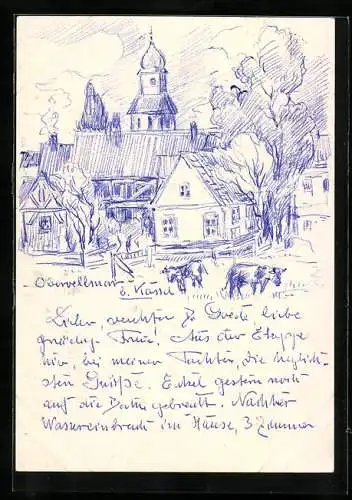 Obervellmar
b. Kassel
Lieber, verehrter Dr. Goede liebe
gnädige Frau. Aus der Etappe
hier, bei meiner Tochter, die herzlich-
sten Grüße. Enkel gestern noch
auf die Bahn gebracht. Nachher
Wassereinbruch im Hause, 3 Zimmer